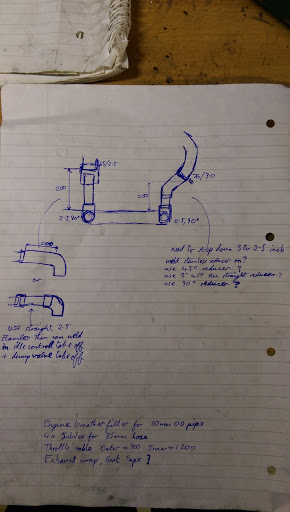 65/2.5
200
200
76/3.0
2.5, 90°
2.5, 90°
200
need to step down 3 to 2.5 inch
weld stainless reducer on?
use 45° reducer?
use 3" 45° then straight reducer?
use 90° reducer?
or
use straight 2.5
stainless then can weld
in idle control take off
+ dump valve take off.
Engine breather filter for 10mm OD pipes
4x Jubilee for 32mm hose
Throttle cable Outer = 90 Inner = 1200
Exhaust wrap, Heat tape?